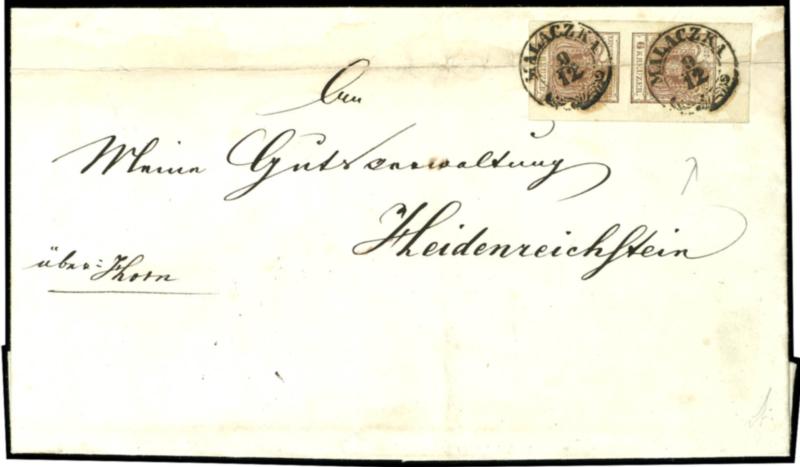 MALACZKA MALACZKA
9 9
12 12
6 KREUZER
An
Meine Gutsverwaltung
Heidenreichstein
über: Horn